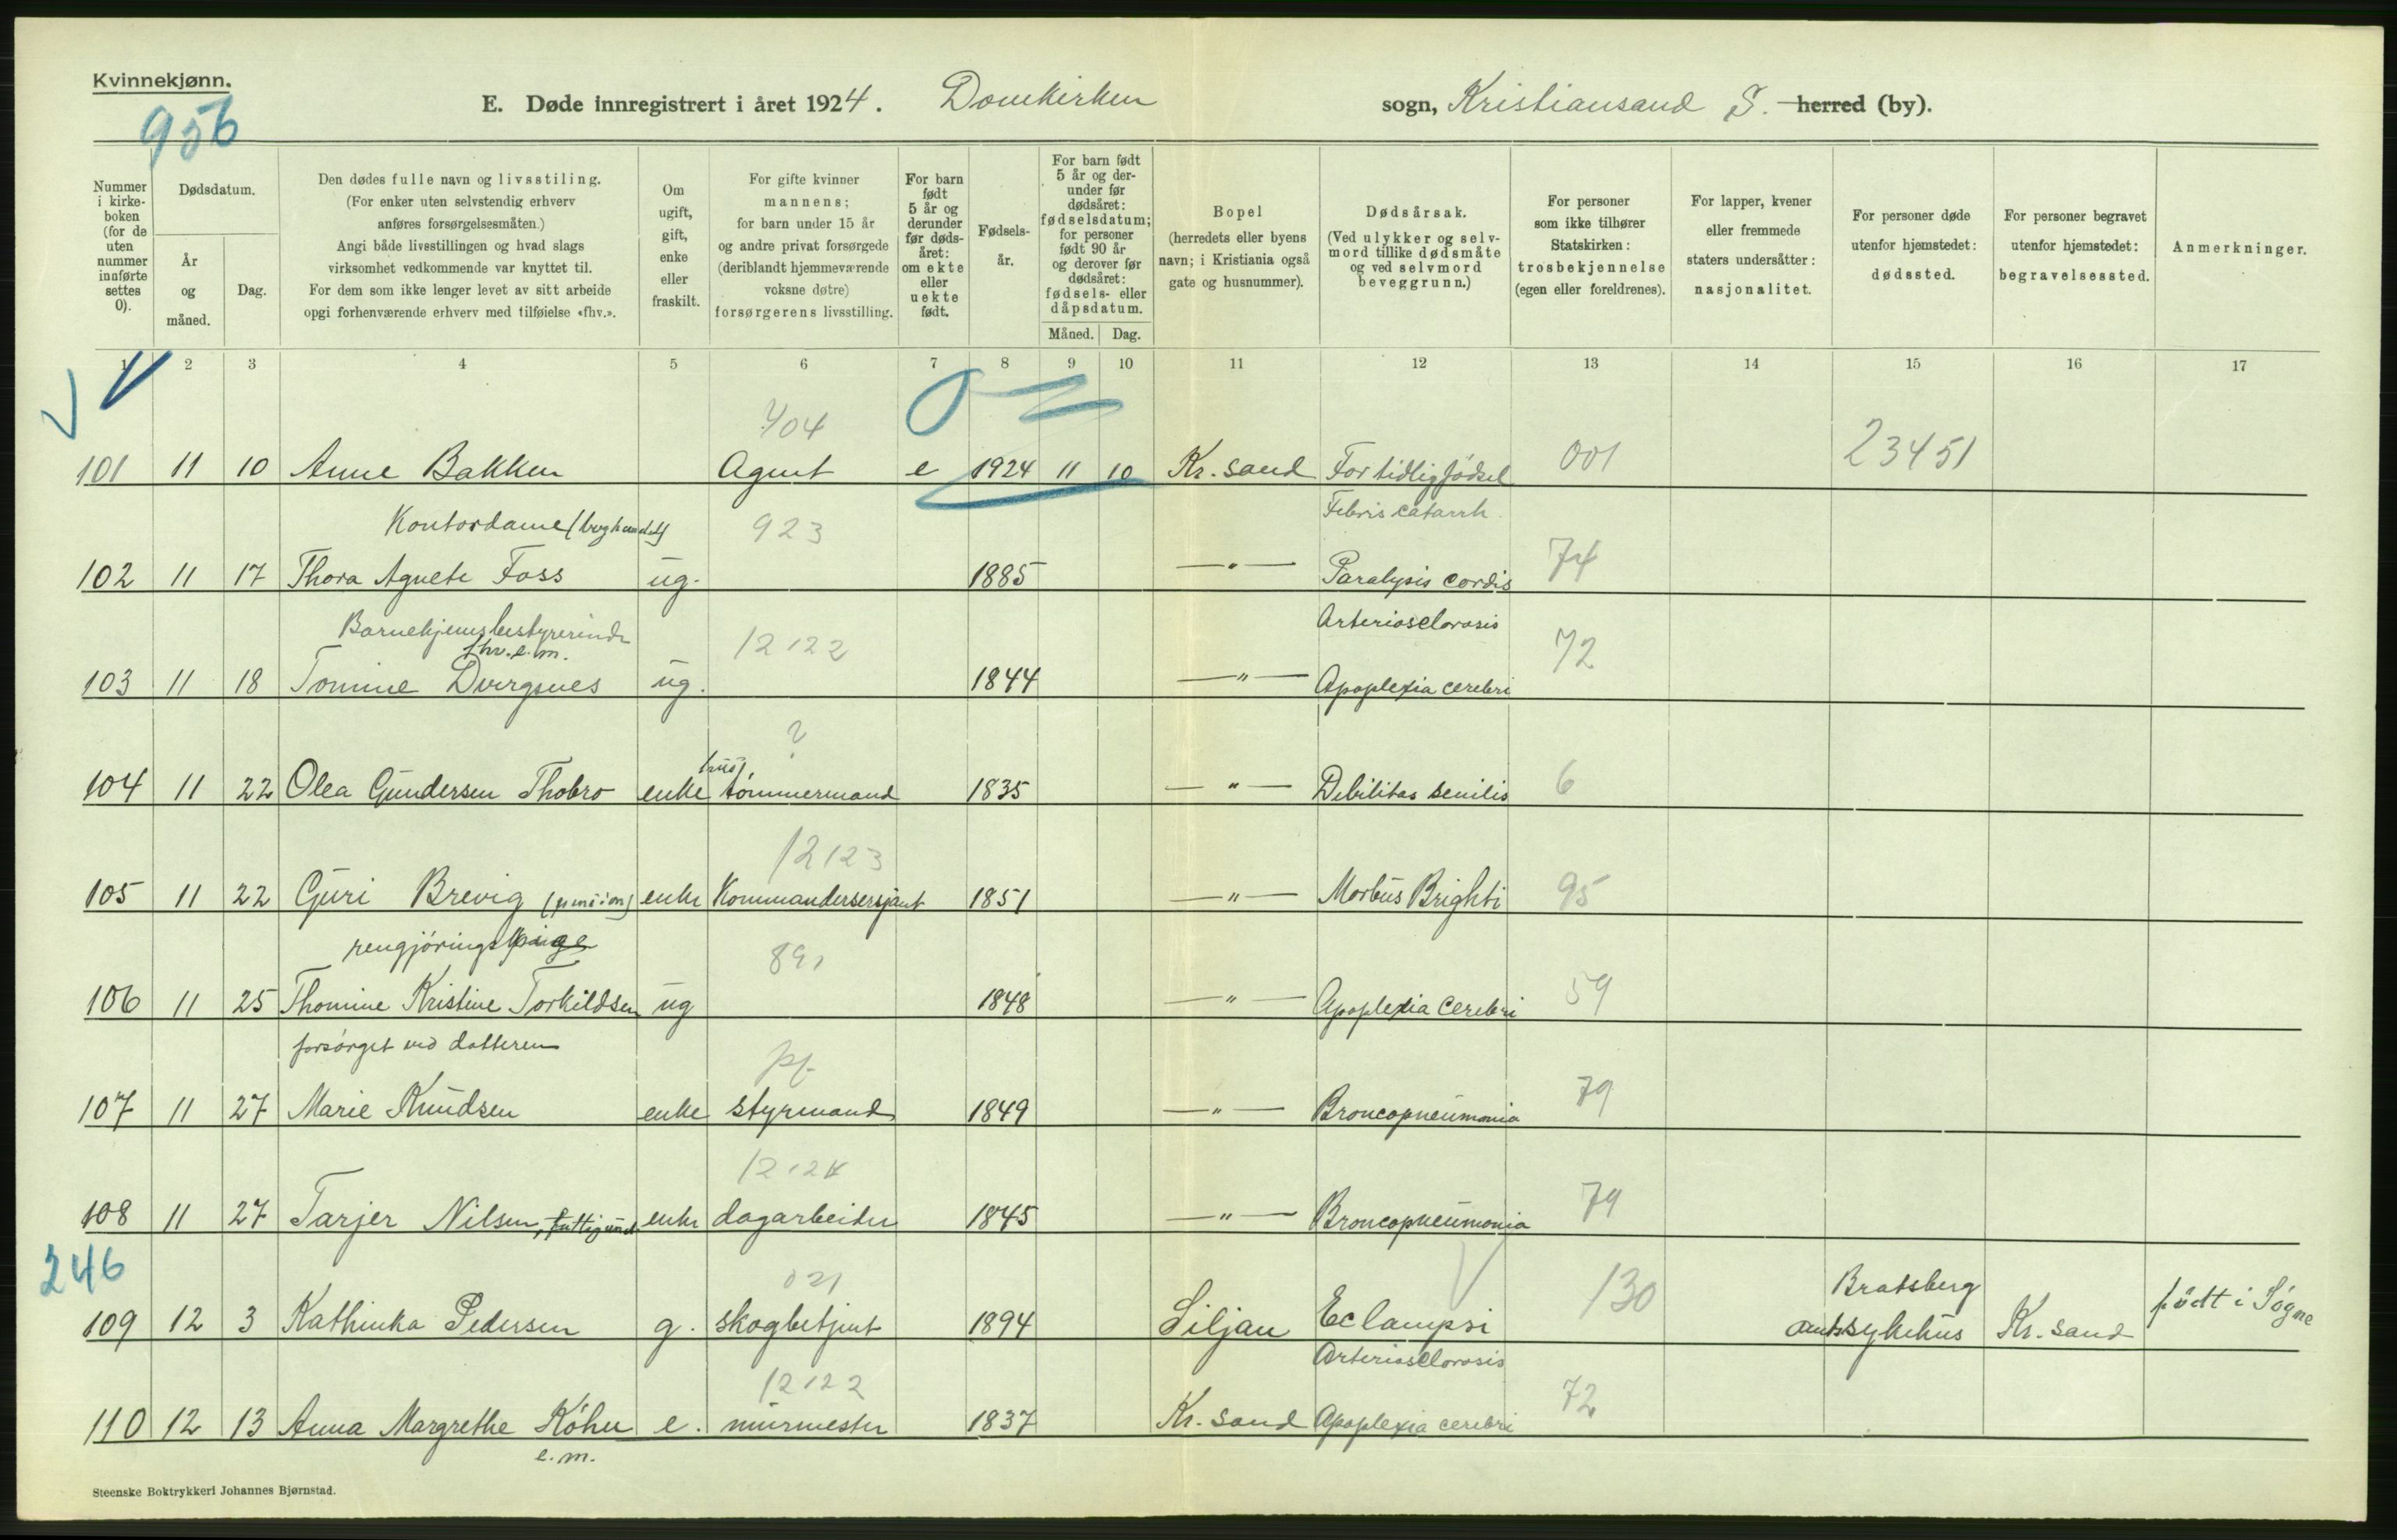 Kvinnekjønn.
956
E. Døde innregistrert i året 1924. Domkirken sogn, Kristiansand S. herred (by).
Nummer i kirkeboken (for de uten nummer innførte settes 0).
Dødsdatum.
År og måned.
Dag.
Den dødes fulle navn og livsstiling.
(For enker uten selvstendig erhverv
anføres forsørgelsesmåten.)
Angi både livsstillingen og hvad slags
virksomhet vedkommende var knyttet til.
For dem som ikke lenger levet av sitt arbeide
opgi forhenværende erhverv med tilføielse «fhv.».
Om ugift, gift, enke eller fraskilt.
For gifte kvinner
mannens;
for barn under 15 år
og andre privat forsørgede
(deriblandt hjemmeværende
voksne døtre)
forsørgerens livsstilling.
For barn født 5 år og derunder før dødsåret: om ekte eller uekte født.
Fødselsår.
For barn født 5 år og derunder før dødsåret: fødselsdatum; for personer født 90 år og derover før dødsåret: fødsels- eller dåpsdatum.
Måned. Dag.
Bopel
(herredets eller byens
navn; i Kristiania også
gate og husnummer).
Dødsårsak.
(Ved ulykker og selvmord tillike dødsmåte
og ved selvmord
beveggrunn.)
For personer
som ikke tilhører
Statskirken:
trosbekjennelse
(egen eller foreldrenes).
For lapper, kvener
eller fremmede
staters undersåtter:
nasjonalitet.
For personer døde
utenfor hjemstedet:
dødssted.
For personer begravet
utenfor hjemstedet:
begravelsessted.
Anmerkninger.
1 2 3 4 5 6 7 8 9 10 11 12 13 14 15 16 17
704
101 11 10 Anne Bakken Agent e 1924 11 10 Kr. sand For tidlig fødsel 001 23451
Kontordame 923 Febris catarrh.
102 11 17 Thora Agnete Foss ug. 1885 —"— Paralysis cordis 74
Barnehjemsbestyrerinde 12122 Arteriosclerosis
fhv. e.m.
103 11 18 Tomine Dvergsnes ug. 1844 —"— Apoplexia cerebri 72
?
hus
104 11 22 Olea Gundersen Thobro enke tømmermand 1835 —"— Debilitas senilis 6
12123
105 11 22 Guri Brevig (pension) enke Kommandersersjant 1851 —"— Morbus Brighti 95
rengjøringspige 891
106 11 25 Thomine Kristine Torkildsen ug 1848 —"— Apoplexia cerebri 59
forsørget ved datteren pf.
107 11 27 Marie Knudsen enke styrmand 1849 —"— Broncopneumonia 79
12124
108 11 27 Tarjer Nilsen, fattigund enke dagarbeider 1845 —"— Broncopneumonia 79
246 021 Bratsberg
109 12 3 Kathinka Pedersen g. skogbetjent 1894 Siljan Eclampsi 130 amtssykehus Kr. sand født i Søgne
12122 Arteriosclerosis
110 12 13 Anna Margrethe Köhn e. murmester 1837 Kr. sand Apoplexia cerebri 72
e.m.
Steenske Boktrykkeri Johannes Bjørnstad.